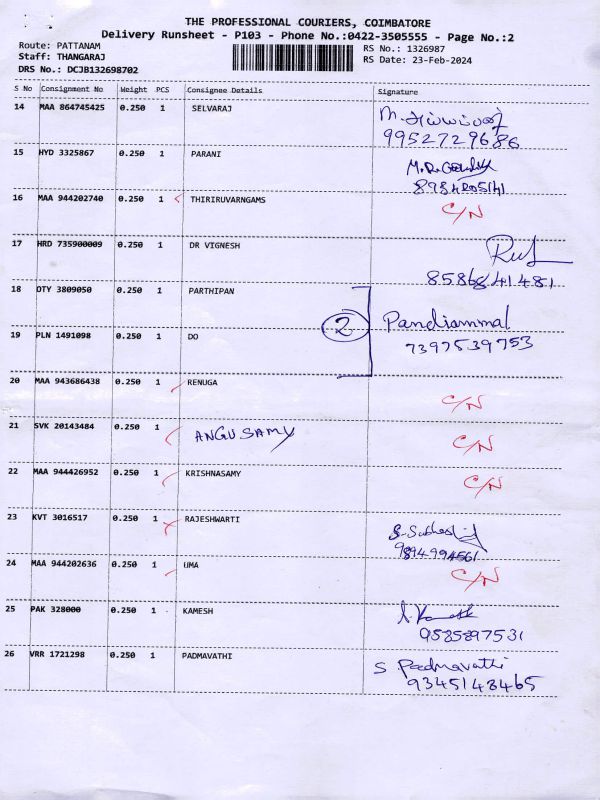 THE PROFESSIONAL COURIERS, COIMBATORE
Delivery Runsheet - P103 - Phone No.:0422-3505555 - Page No.:2
Route: PATTANAM
RS No.: 1326987
Staff: THANGARAJ
RS Date: 23-Feb-2024
DRS No.: DCJB132698702
S No Consignment No Weight PCS Consignee Details Signature
14 MAA 864745425 0.250 1 SELVARAJ
9952729686
15 HYD 3325867 0.250 1 PARANI
16 MAA 944202740 0.250 1 THIRIRUVARNGAMS C/N
17 HRD 735900009 0.250 1 DR VIGNESH
18 OTY 3809050 0.250 1 PARTHIPAN
2 Pandiammal
19 PLN 1491098 0.250 1 DO 7397539753
20 MAA 943686438 0.250 1 RENUGA C/N
21 SVK 20143484 0.250 1 ANGUSAMY C/N
22 MAA 944426952 0.250 1 KRISHNASAMY C/N
23 KVT 3016517 0.250 1 RAJESHWARTI
9894994561
24 MAA 944202636 0.250 1 UMA C/N
25 PAK 328000 0.250 1 KAMESH
9585897531
26 VRR 1721298 0.250 1 PADMAVATHI S Padmavathi
9345148465